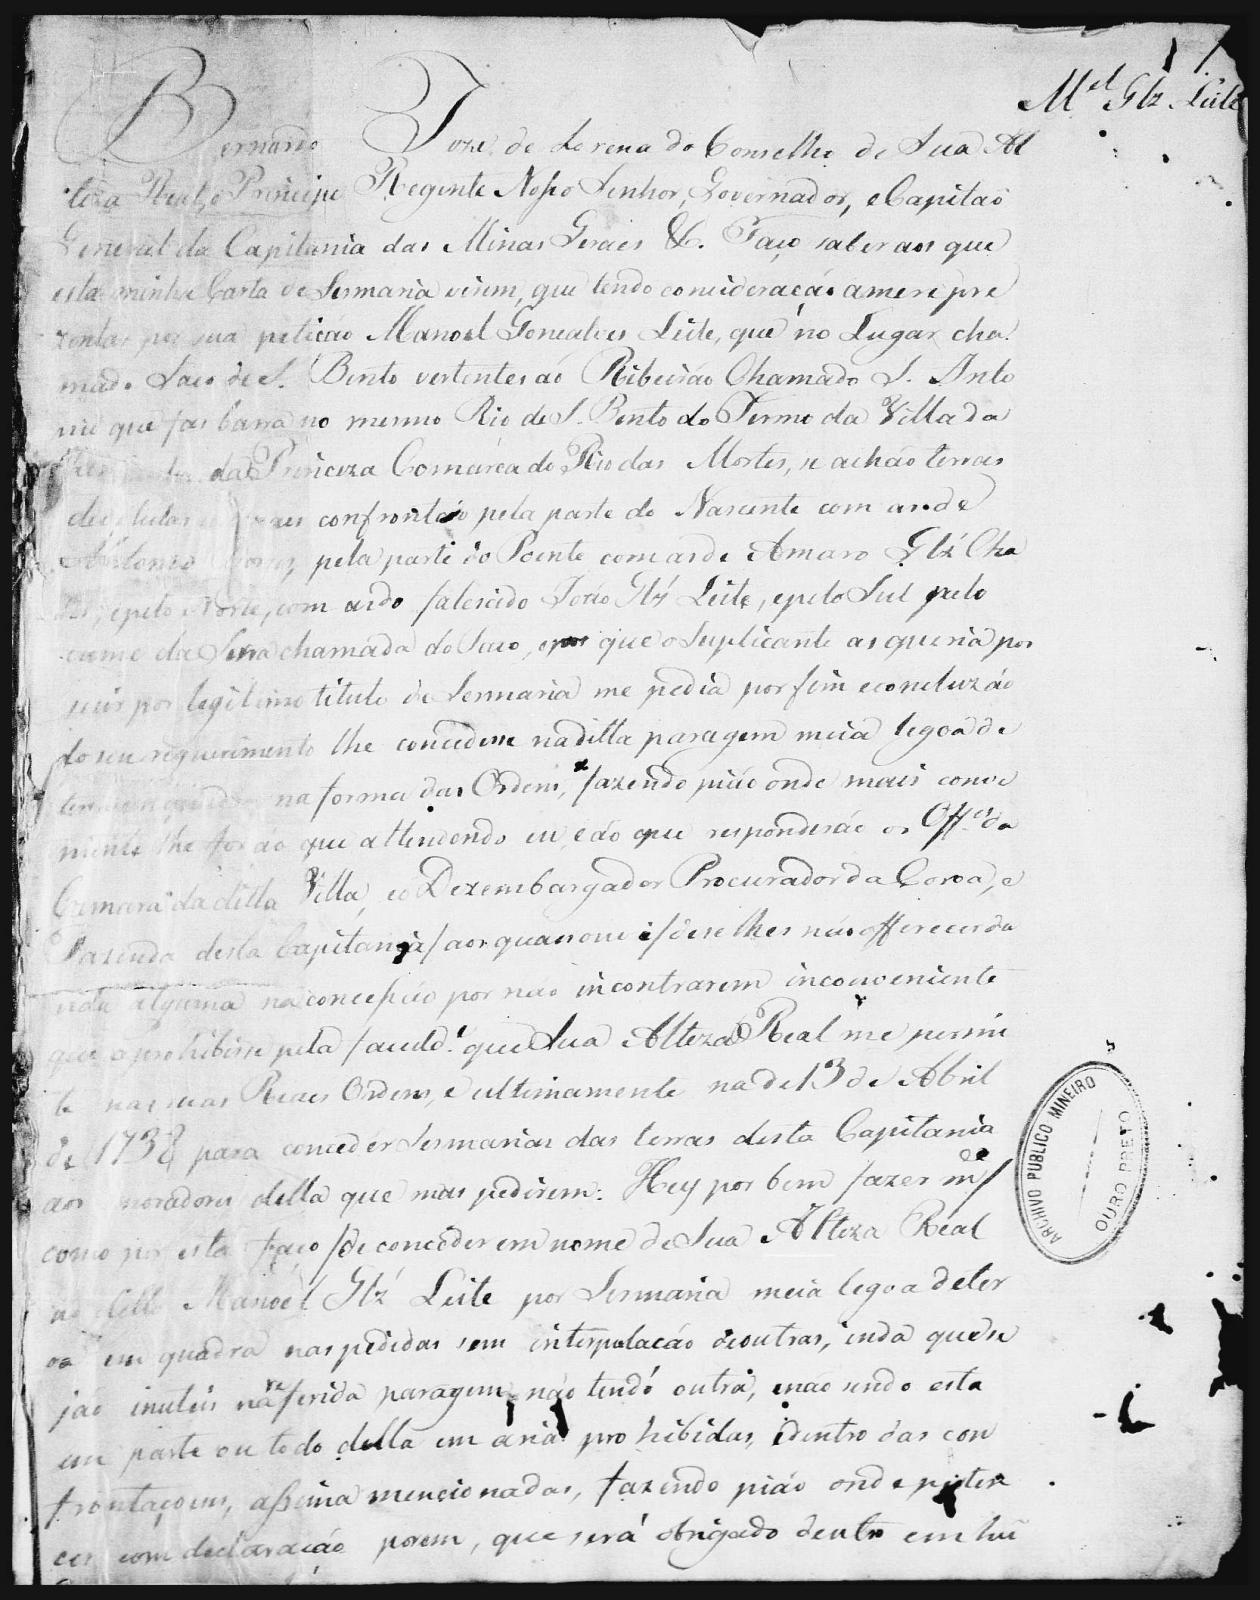 1
M.el Glz Leite
Bernardo Joze de Lorena do Conselho de Sua Al
teza Real, o Principe Regente Nosso Senhor, Governador, e Capitaõ
General da Capitania das Minas Geraes &. Faço saber aos que
esta minha Carta de Sesmaria virem, que tendo consideraçaõ a me re pre
zentar por sua petiçaõ Manoel Gonçalves Leite, que no Lugar cha
mado Saco de S. Bento vertentes aõ Ribeiraõ Chamado S. Anto
nio que fas barra no mesmo Rio de S. Bento do Termo da Villa da
da Princeza Comarca do Rio das Mortes, se achaõ terras
confrontaõ pela parte do Nascente com as de
Antonio pela parte do Poente com as de Amaro Glz' Cha
, e pelo Norte, com as do falescido Joaõ Glz' Leite, e pelo Sul pelo
cume da Serra chamada do Saco, e por que o Suplicante as queria pos
suir por legitimo titulo de Sesmaria me pedia por fim e concluzaõ
do seu requerimento lhe concedesse na ditta paragem meia legoa de
na forma das Ordens, fazendo piaõ onde mais conve
niente lhe for ao que attendendo eu, e ao que responderaõ os Off.es da
Camara da ditta Villa, e o Dezembargador Procurador da Coroa, e
Fazenda desta Capitania /aos quaes ouvi/ de se lhes naõ offerecer du
vida alguma na concessaõ por naõ incontrarem inconveniente
que a prohibisse pela faculd.e que Sua Alteza Real me permi
te nas suas Reaes Ordens, e ultimamente na de 13 de Abril
de 1738 para conceder Sesmarias das terras desta Capitania
aos moradores della que mas pedirem: Hey por bem fazer m.ce /
como por esta faço / de conceder em nome de Sua Alteza Real
ao ditto Manoel Glz' Leite por Sesmaria meia legoa de ter
ra em quadra nas pedidas sem interpolaçaõ de outras, inda que se
jaõ inuteis na referida paragem naõ tendo outra, e naõ sendo esta
em parte ou todo della em arias prohibidas, e dentro das con
frontaçoens, assima mencionadas, fazendo piaõ onde perten
cer com declaraçaõ porem, que será obrigado dentro em hũ
ARCHIVO PUBLICO MINEIRO
OURO PRETO